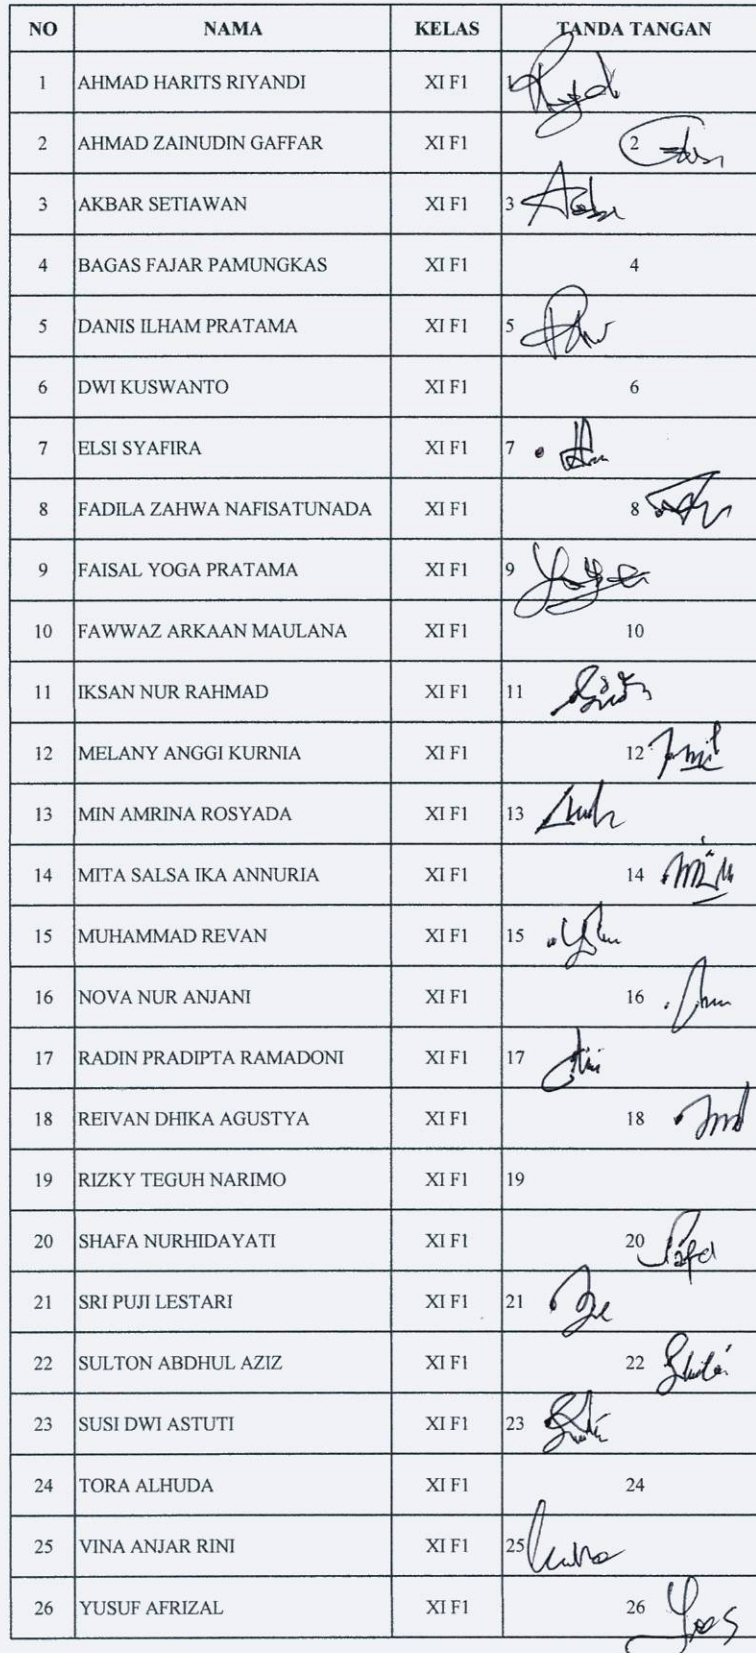 NO NAMA KELAS TANDA TANGAN
1 AHMAD HARITS RIYANDI XI F1 1
2 AHMAD ZAINUDIN GAFFAR XI F1 2
3 AKBAR SETIAWAN XI F1 3
4 BAGAS FAJAR PAMUNGKAS XI F1 4
5 DANIS ILHAM PRATAMA XI F1 5
6 DWI KUSWANTO XI F1 6
7 ELSI SYAFIRA XI F1 7
8 FADILA ZAHWA NAFISATUNADA XI F1 8
9 FAISAL YOGA PRATAMA XI F1 9
10 FAWWAZ ARKAAN MAULANA XI F1 10
11 IKSAN NUR RAHMAD XI F1 11
12 MELANY ANGGI KURNIA XI F1 12
13 MIN AMRINA ROSYADA XI F1 13
14 MITA SALSA IKA ANNURIA XI F1 14
15 MUHAMMAD REVAN XI F1 15
16 NOVA NUR ANJANI XI F1 16
17 RADIN PRADIPTA RAMADONI XI F1 17
18 REIVAN DHIKA AGUSTYA XI F1 18
19 RIZKY TEGUH NARIMO XI F1 19
20 SHAFA NURHIDAYATI XI F1 20
21 SRI PUJI LESTARI XI F1 21
22 SULTON ABDHUL AZIZ XI F1 22
23 SUSI DWI ASTUTI XI F1 23
24 TORA ALHUDA XI F1 24
25 VINA ANJAR RINI XI F1 25
26 YUSUF AFRIZAL XI F1 26